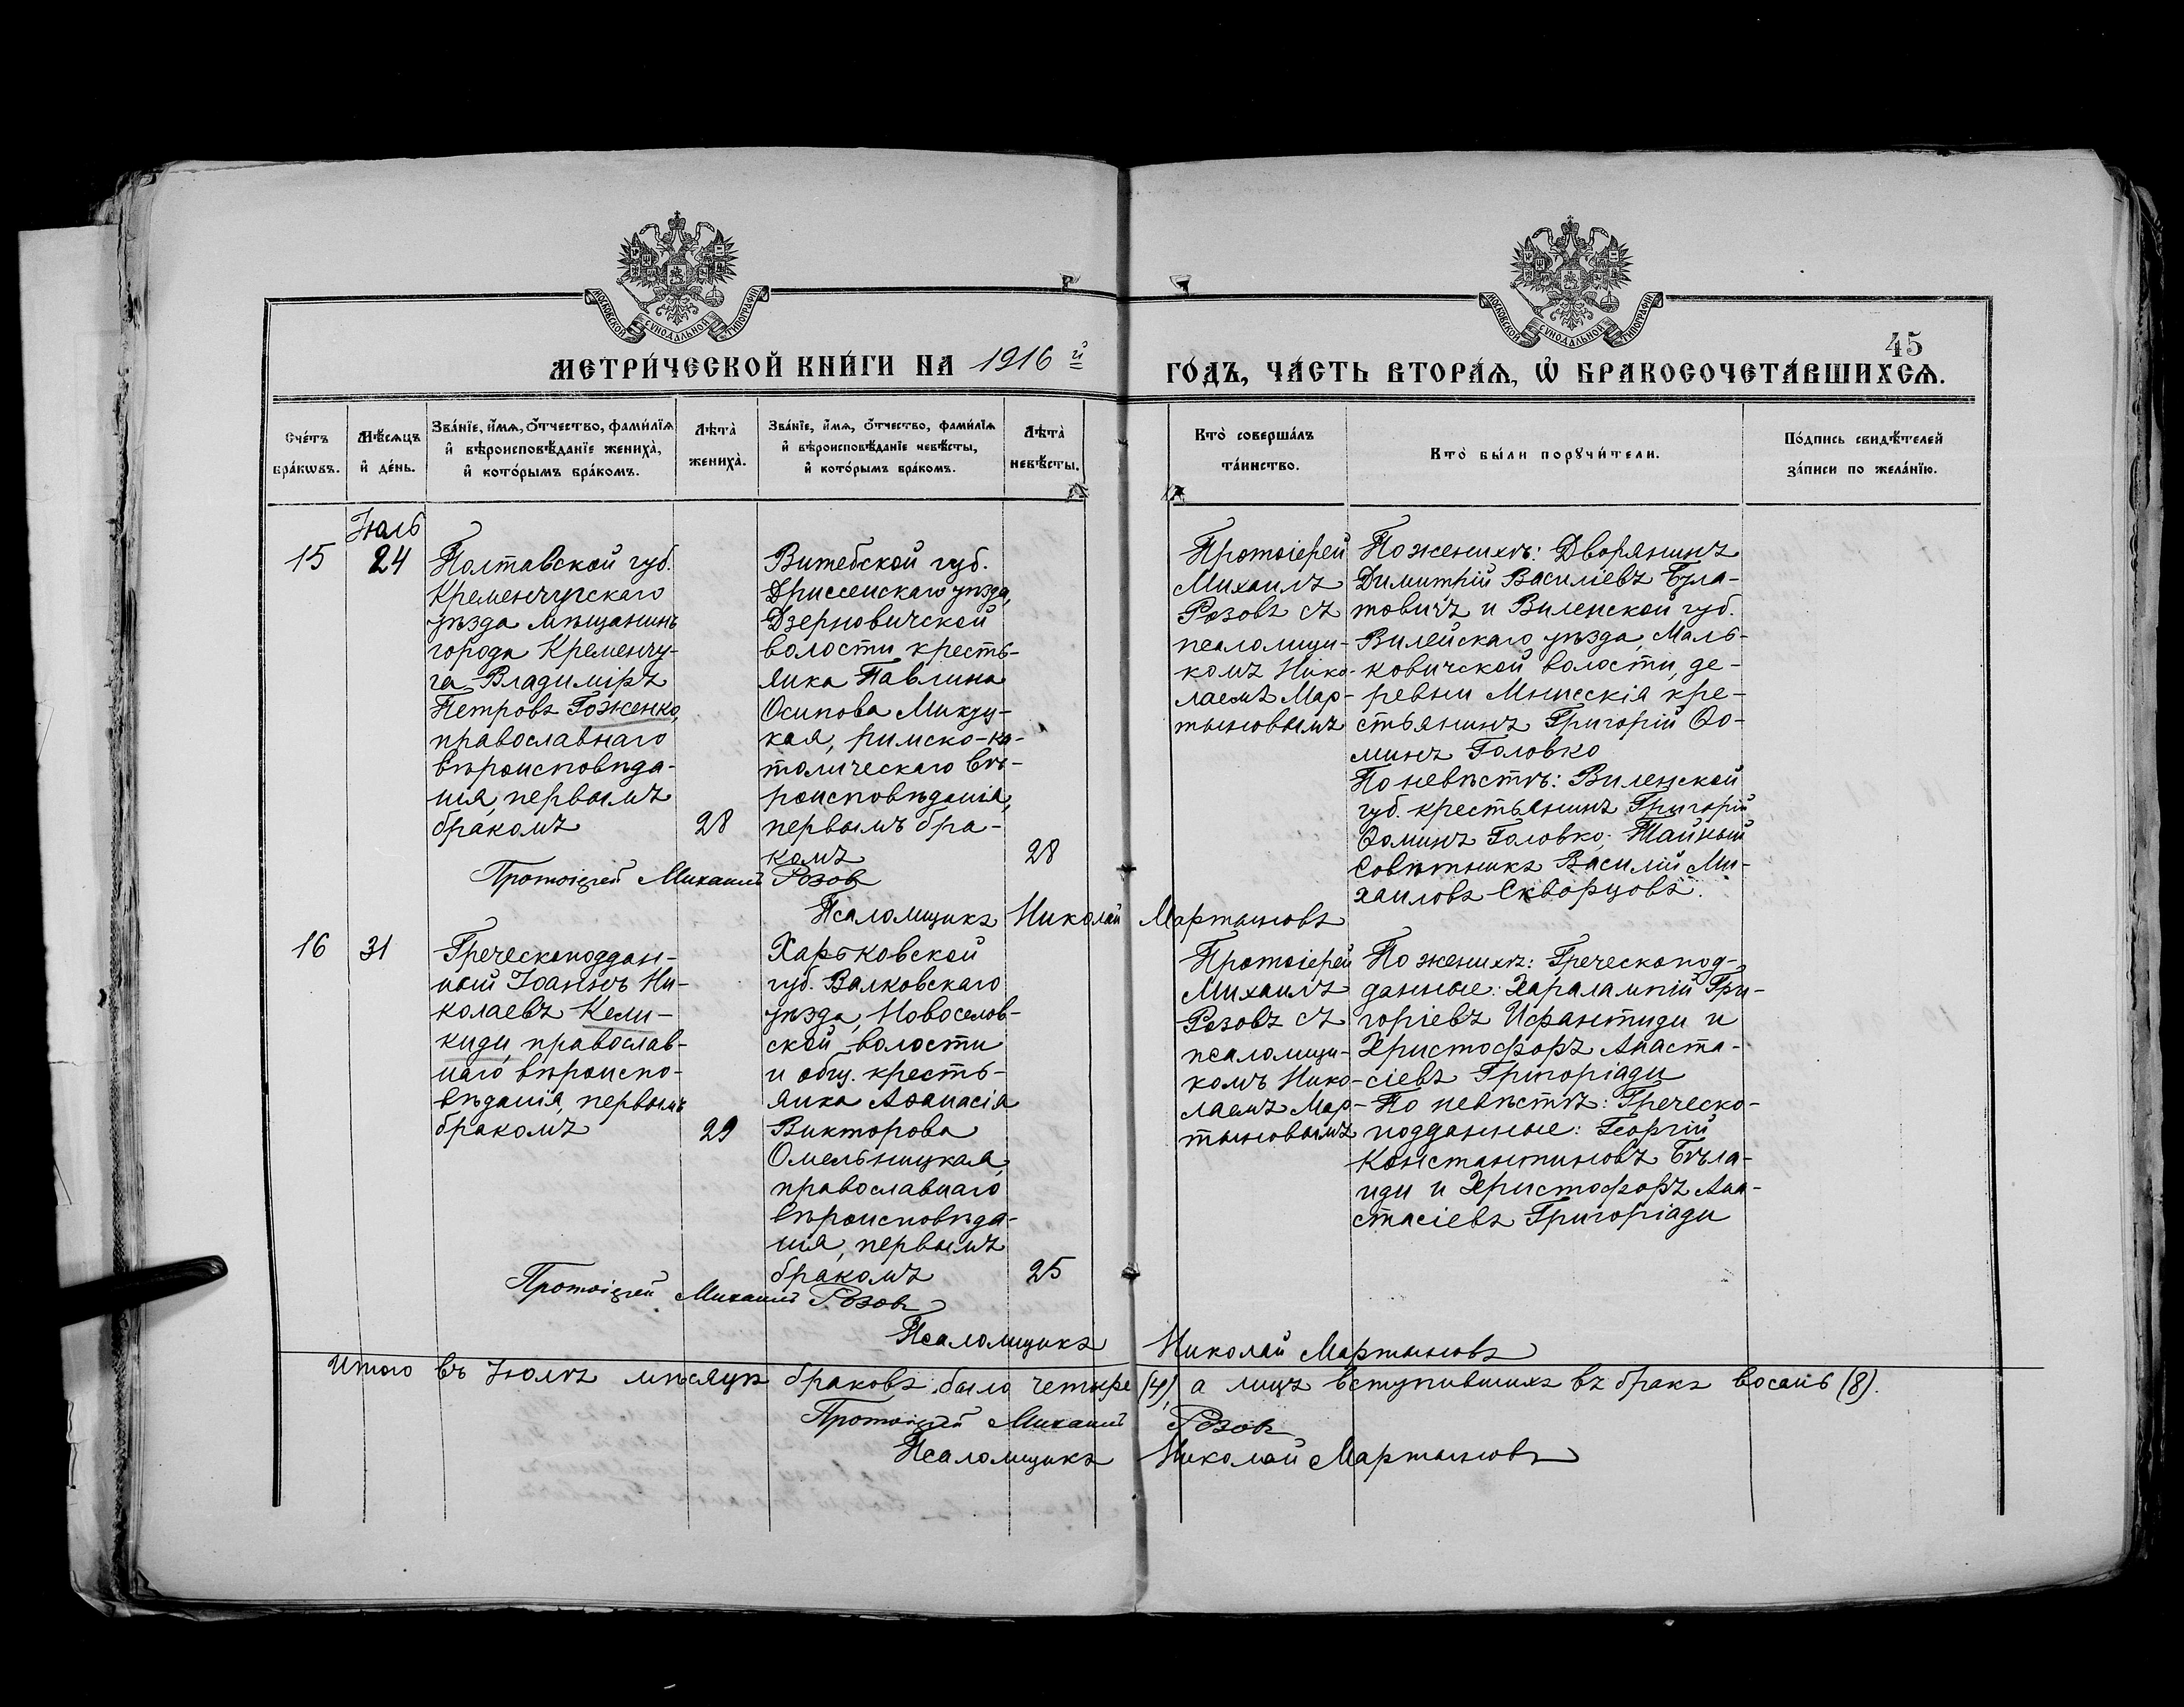 МОСКОВСКОЙ СУНОДАЛЬНОЙ ТИПОГРАФІИ
МОСКОВСКОЙ СУНОДАЛЬНОЙ ТИПОГРАФІИ
45
МЕТРИ́ЧЕСКОЙ КНИ́ГИ НА 1916 й ГО́ДЪ, ЧА́СТЬ ВТОРА́Я, Ѡ҆ БРАКОСОЧЕТА́ВШИХСЯ.
Сче́тъ
бра́кѡвъ.
Мѣ́сяцъ
и҆ де́нь.
Зва́нїе, и҆́мя, ѻ҆́тчество, фами́лїя
и҆ вѣроисповѣ́данїе жениха̀,
и҆ кото́рымъ бра́комъ.
Лѣта̀
жениха̀.
Зва́нїе, и҆́мя, ѻ҆́тчество, фами́лїя
и҆ вѣроисповѣ́данїе невѣ́сты,
и҆ кото́рымъ бра́комъ.
Лѣта̀
невѣ́сты.
Кто̀ соверша́лъ
та́инство.
Кто̀ бы́ли порꙋчи́тели.
По́дпись свидѣ́телей
за́писи по жела́нїю.
15
Іюль
24
Полтавской губ.
Кременчугскаго
уѣзда мѣщанинъ
города Кременчу-
га Владиміръ
Петровъ Гоженко,
православнаго
вѣроисповѣда-
нія, первымъ
бракомъ
28
Витебской губ.
Дриссенскаго уѣзда,
Дзерновичской
волости кресть-
янка Павлина
Осипова Микуц-
кая, римско-ка-
толическаго вѣ-
роисповѣданія,
первымъ бра-
комъ
28
Протоіерей
Михаилъ
Розовъ съ
псаломщи-
комъ Нико-
лаемъ Мар-
тыновымъ
По женихѣ: Дворянинъ
Димитрій Василіевъ Була-
товичъ и Виленской губ.
Вилейскаго уѣзда, Маль-
ковичской волости, де-
ревни Мнисскія кре-
стьянинъ Григорій Ѳо-
минъ Головко
По невѣстѣ: Виленской
губ. крестьянинъ Григорій
Ѳоминъ Головко; Тайный
Совѣтникъ Василій Ми-
хаиловъ Скворцовъ.
Протоіерей Михаилъ Розовъ
Псаломщикъ Николай Мартыновъ
16
31
Греческоподдан-
ный Іоаннъ Ни-
колаевъ Кели-
киди, православ-
наго вѣроиспо-
вѣданія, первымъ
бракомъ
29
Харьковской
губ. Валковскаго
уѣзда, Новоселов-
ской волости
и общ. кресть-
янка Аѳанасія
Викторова
Омельницкая,
православнаго
вѣроисповѣда-
нія, первымъ
бракомъ
25
Протоіерей
Михаилъ
Розовъ съ
псаломщи-
комъ Нико-
лаемъ Мар-
тыновымъ
По женихѣ: Греческопод-
данные: Харалампій Гри-
горіевъ Исфантиди и
Христофоръ Анаста-
сіевъ Григоріади
По невѣстѣ: Греческо-
подданные: Георгій
Константиновъ Бѣла-
ниди и Христофоръ Ана-
стасіевъ Григоріади
Протоіерей Михаилъ Розовъ
Псаломщикъ Николай Мартыновъ
Итого въ Іюлѣ мѣсяцѣ браковъ было четыре (4), а лицъ вступившихъ въ бракъ восемь (8).
Протоіерей Михаилъ Розовъ
Псаломщикъ Николай Мартыновъ